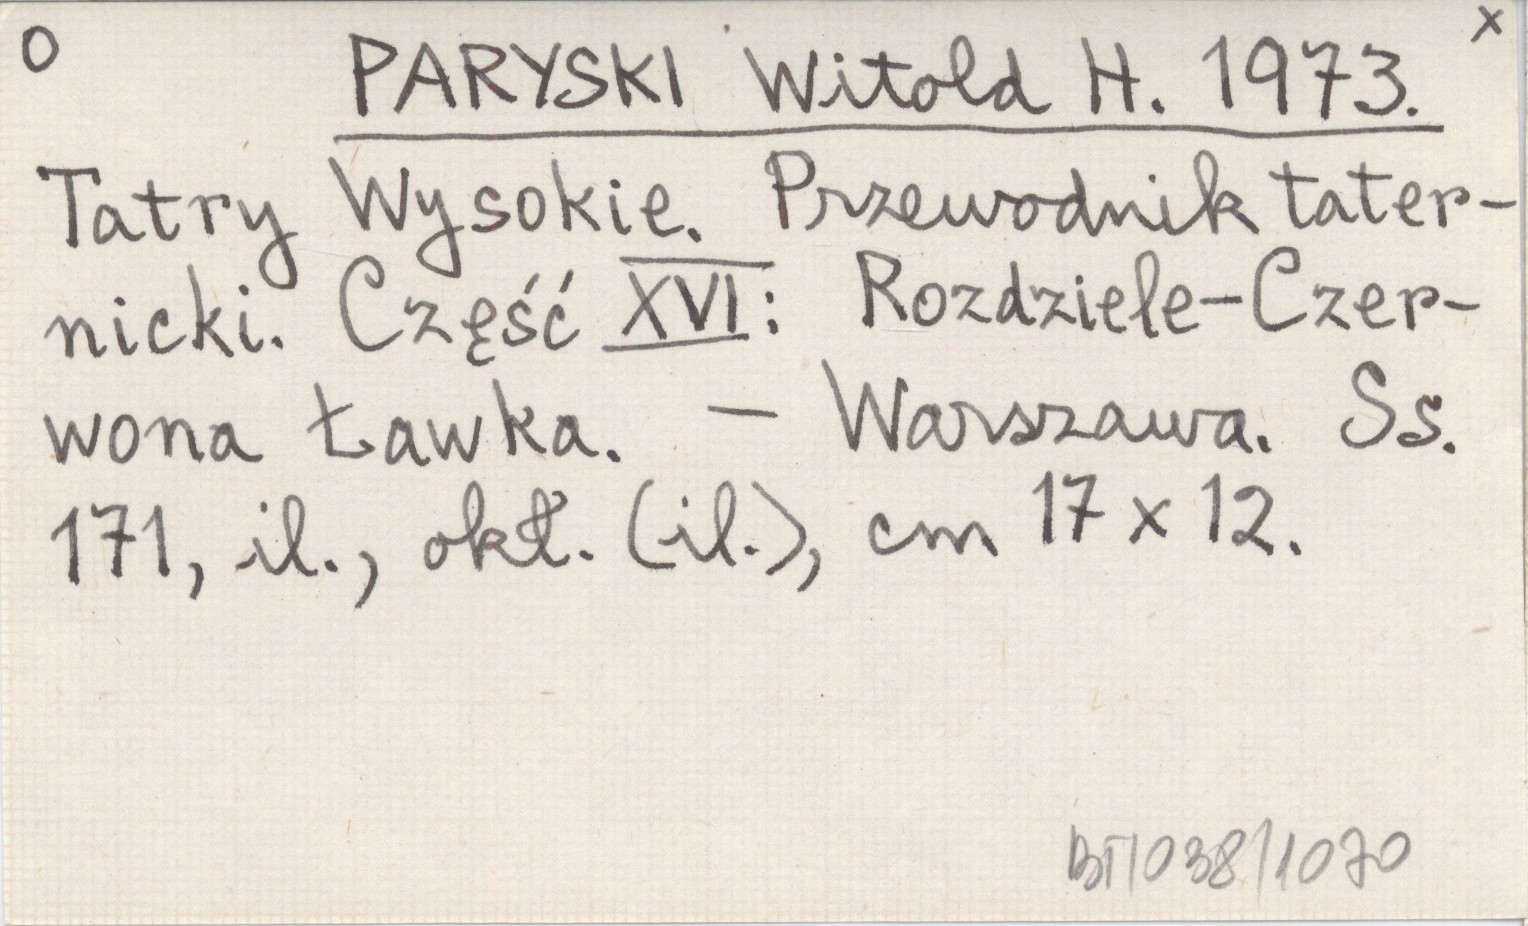 O
x
PARYSKI Witold H. 1973.
Tatry Wysokie. Przewodnik tater-
nicki. Część XVI: Rozdziele-Czer-
wona Ławka. — Warszawa. Ss.
171, il., okł. (il.), cm 17 x 12.
BT/038/1070